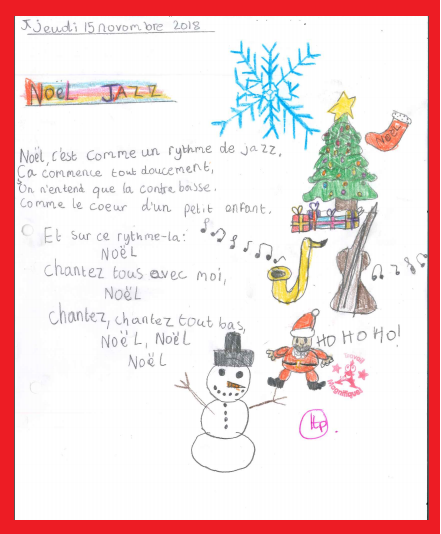 Jeudi 15 novembre 2018
NOËL JAZZ
NOËL
Noël, c'est comme un rythme de jazz,
Ça commence tout doucement,
On n'entend que la contre basse.
Comme le coeur d'un petit enfant.
Et sur ce rythme-la:
NOËL
Chantez tous avec moi,
NOËL
Chantez, chantez tout bas,
NOËL, NOËL
NOËL
HO HO HO!
Magnifique!
1tp